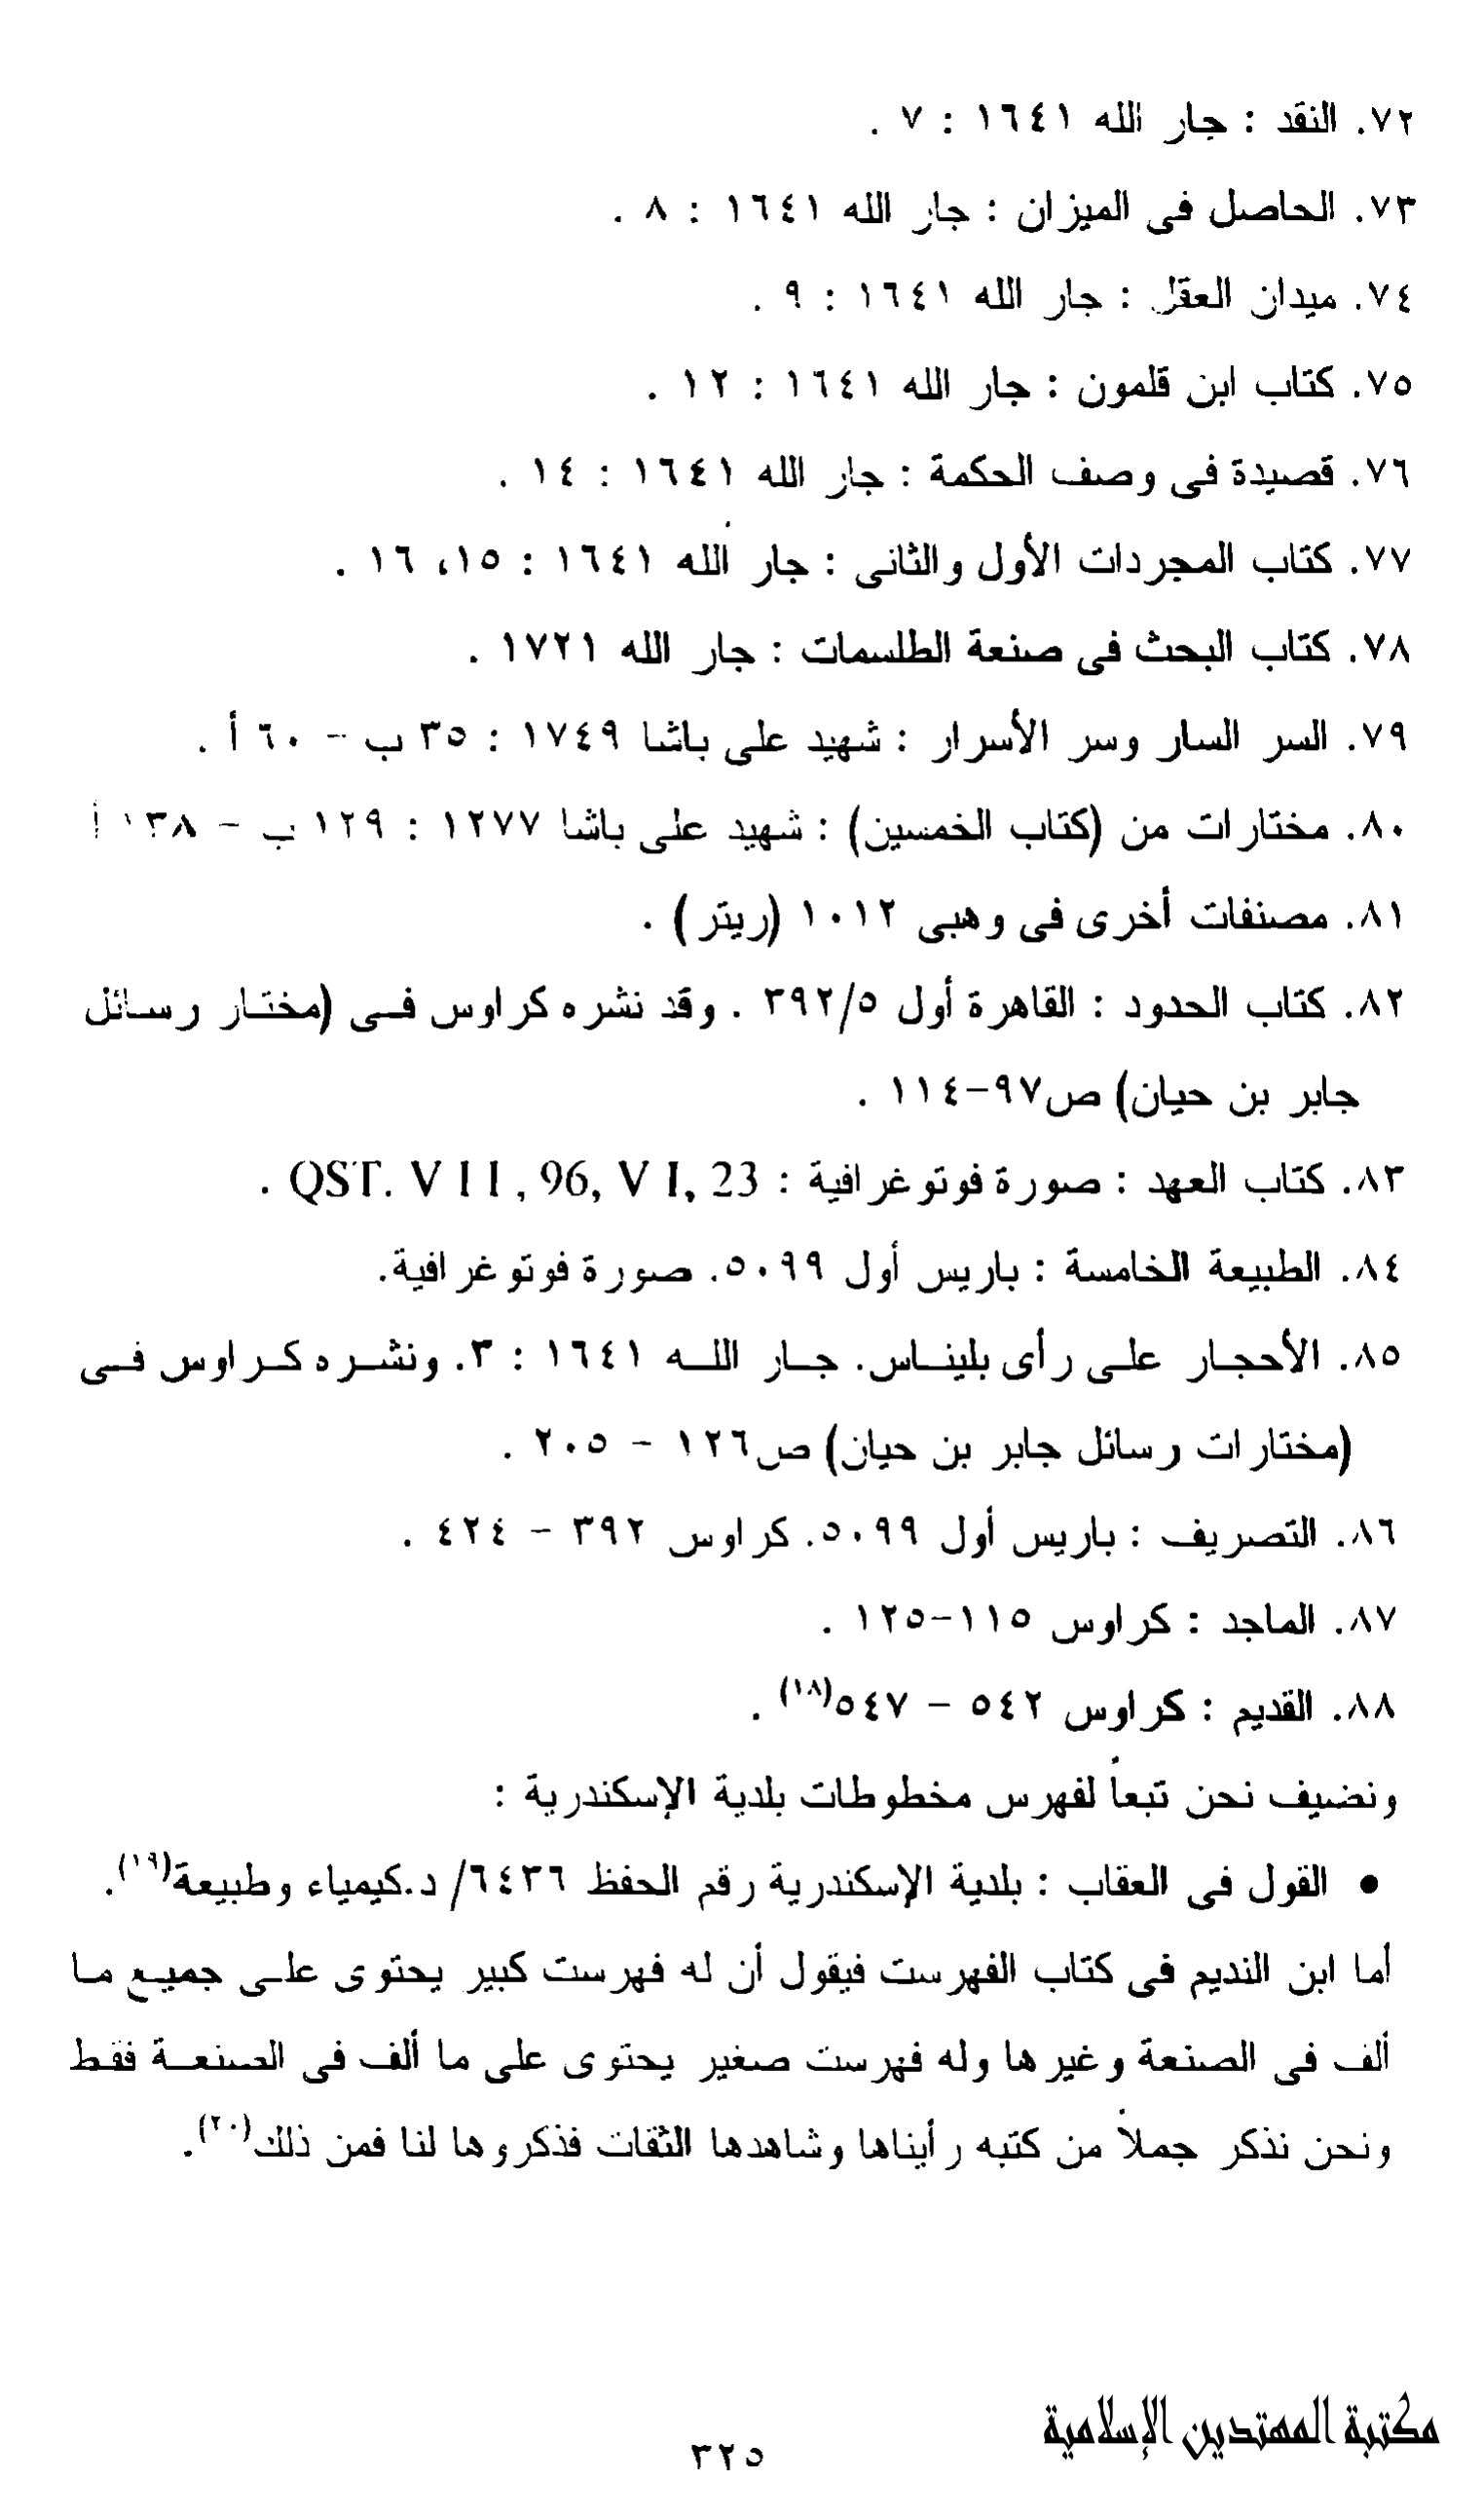 ٧٢. النقد : جار الله ١٦٤١ : ٧ .
٧٣. الحاصل فى الميزان : جار الله ١٦٤١ : ٨ .
٧٤. ميدان العقل : جار الله ١٦٤١ : ٩ .
٧٥. كتاب ابن قلمون : جار الله ١٦٤١ : ١٢ .
٧٦. قصيدة فى وصف الحكمة : جار الله ١٦٤١ : ١٤ .
٧٧. كتاب المجردات الأول والثانى : جار الله ١٦٤١ : ١٥، ١٦ .
٧٨. كتاب البحث فى صنعة الطلسمات : جار الله ١٧٢١ .
٧٩. السر السار وسر الأسرار : شهيد على باشا ١٧٤٩ : ٣٥ ب – ٦٠ أ .
٨٠. مختارات من (كتاب الخمسين) : شهيد على باشا ١٢٧٧ : ١٢٩ ب – ١٣٨ أ
٨١. مصنفات أخرى فى وهبى ١٠١٢ (ريتر) .
٨٢. كتاب الحدود : القاهرة أول ٣٩٢/٥ . وقد نشره كراوس فى (مختار رسائل
جابر بن حيان) ص٩٧–١١٤ .
٨٣. كتاب العهد : صورة فوتوغرافية : QST. VII, 96, VI, 23 .
٨٤. الطبيعة الخامسة : باريس أول ٥٠٩٩. صورة فوتوغرافية.
٨٥. الأحجار على رأى بليناس. جار الله ١٦٤١ : ٣. ونشره كراوس فى
(مختارات رسائل جابر بن حيان) ص١٢٦ – ٢٠٥ .
٨٦. التصريف : باريس أول ٥٠٩٩. كراوس ٣٩٢ – ٤٢٤ .
٨٧. الماجد : كراوس ١١٥–١٢٥ .
٨٨. القديم : كراوس ٥٤٢ – ٥٤٧(١٨) .
ونضيف نحن تبعاً لفهرس مخطوطات بلدية الإسكندرية :
• القول فى العقاب : بلدية الإسكندرية رقم الحفظ ٦٤٣٦/ د.كيمياء وطبيعة(١٩).
أما ابن النديم فى كتاب الفهرست فيقول أن له فهرست كبير يحتوى على جميع ما
ألف فى الصنعة وغيرها وله فهرست صغير يحتوى على ما ألف فى الصنعة فقط
ونحن نذكر جملاً من كتبه رأيناها وشاهدها الثقات فذكروها لنا فمن ذلك(٢٠).
مكتبة المهتدين الإسلامية
٣٢٥